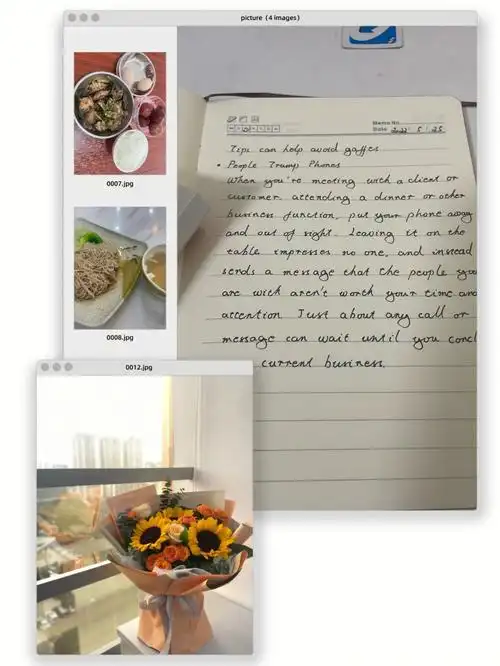 picture (4 images)
0007.jpg
0008.jpg
Memo No.
Date 5 25
Tips can help avoid gaffes
• People Trump Phones
When you're meeting with a client or
customer attending a dinner or other
business function, put your phone away
and out of sight. Leaving it on the
table impresses no one, and instead
sends a message that the people you
are with aren't worth your time and
attention Just about any call or
message can wait until you concl
current business.
0012.jpg